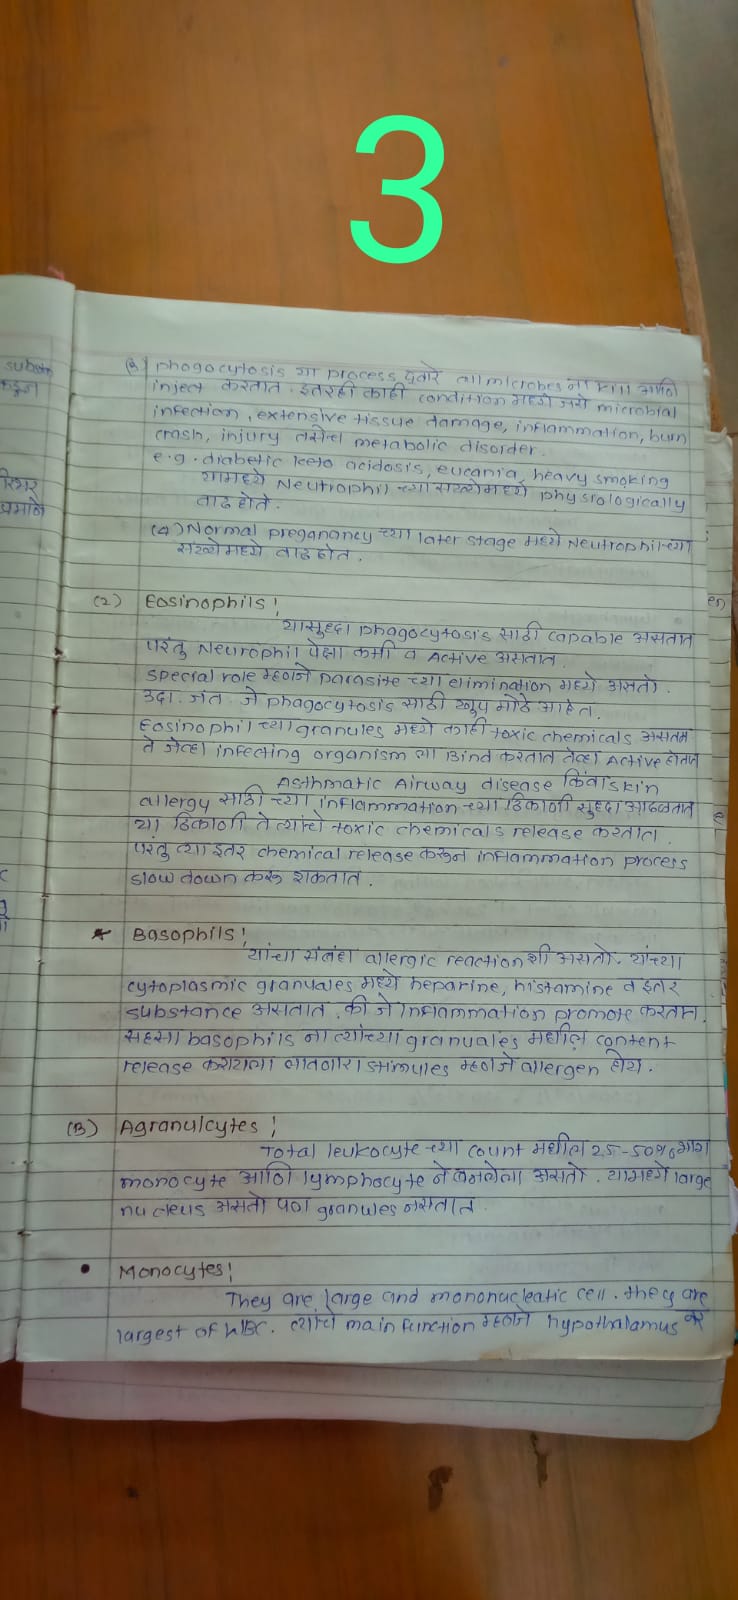 3
substa
(3) phagocytosis या process द्वारे all microbes ना kill आणि
inject करतात. इतरही काही condition मध्ये जसे microbial
infection, extensive tissue damage, inflammation, burn
crash, injury तसेच metabolic disorder.
e.g. diabetic keto acidosis, eucania, heavy smoking
यामध्ये Neutrophil च्या संख्येमध्ये physiologically
वाढ होते.
प्रमाणे
(4) Normal preganancy च्या later stage मध्ये Neutrophil च्या
संख्येमध्ये वाढ होत.
(2) Eosinophils!
यासुध्दा phagocytosis साठी capable असतात
परंतु Neurophil पेक्षा कमी व Active असतात.
special role म्हणजे parasite च्या elimination मध्ये असतो.
उदा. जंत जे phagocytosis साठी खुप मोठे आहेत.
Eosinophil च्या granules मध्ये काही toxic chemicals असतात
ते जेव्हा infecting organism ला Bind करतात तेव्हा Active होतात
Asthmatic Airway disease किंवा skin
allergy साठी च्या inflammation च्या ठिकाणी सुध्दा आढळतात
या ठिकाणी ते त्यांचे toxic chemicals release करतात.
परंतु त्या इतर chemical release करून inflammation process
slow down करू शकतात.
* Basophils!
यांचा संबंध allergic reaction शी असतो. यांच्या
cytoplasmic granuales मध्ये heparine, histamine व इतर
substance असतात की जे inflammation promote करतात.
सहसा basophils ना त्यांच्या granuales मधील content
release करायला लावणारा stimules म्हणजे allergen होय.
(B) Agranulcytes!
Total leukocyte च्या count मधील 25-50% भाग
monocyte आणि lymphocyte ने बनलेला असतो. यामध्ये large
nucleus असतो पण granules नसतात.
• Monocytes!
They are large and mononucleatic cell. they are
largest of WBC. त्यांचे main function म्हणजे hypothalamus वर